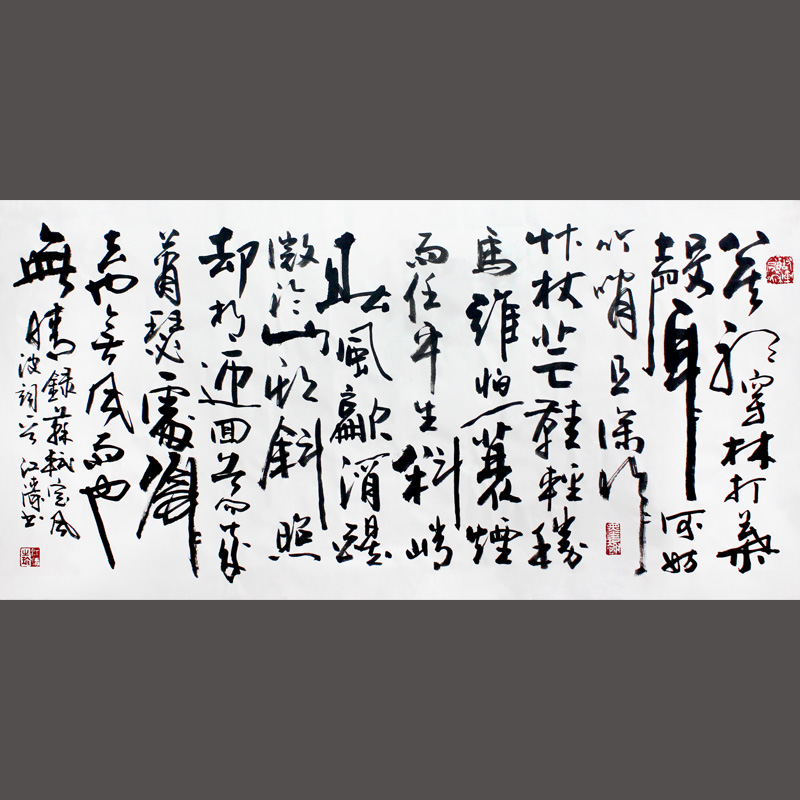 莫聽穿林打葉
聲何妨
吟嘯且徐行
竹杖芒鞋輕勝
馬誰怕一蓑煙
雨任平生料峭
春風吹酒醒
微冷山頭斜照
却相迎回首向來
蕭瑟處歸
去也無風雨也
無晴
錄蘇軾定風
波詞首江濤書